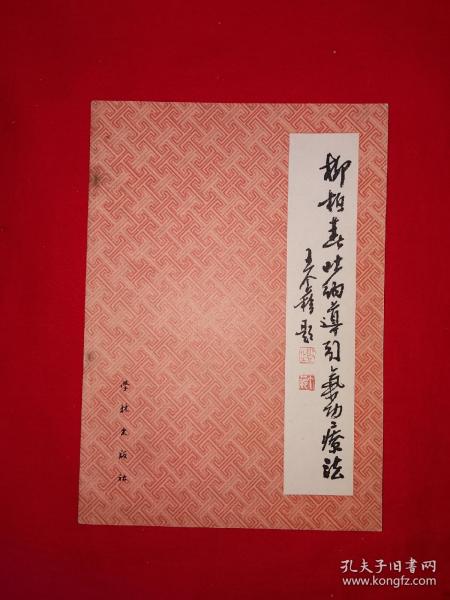 柳栢春吐纳導引氣功療法
王个簃題
学林出版社
孔夫子旧书网
www.kongfz.com